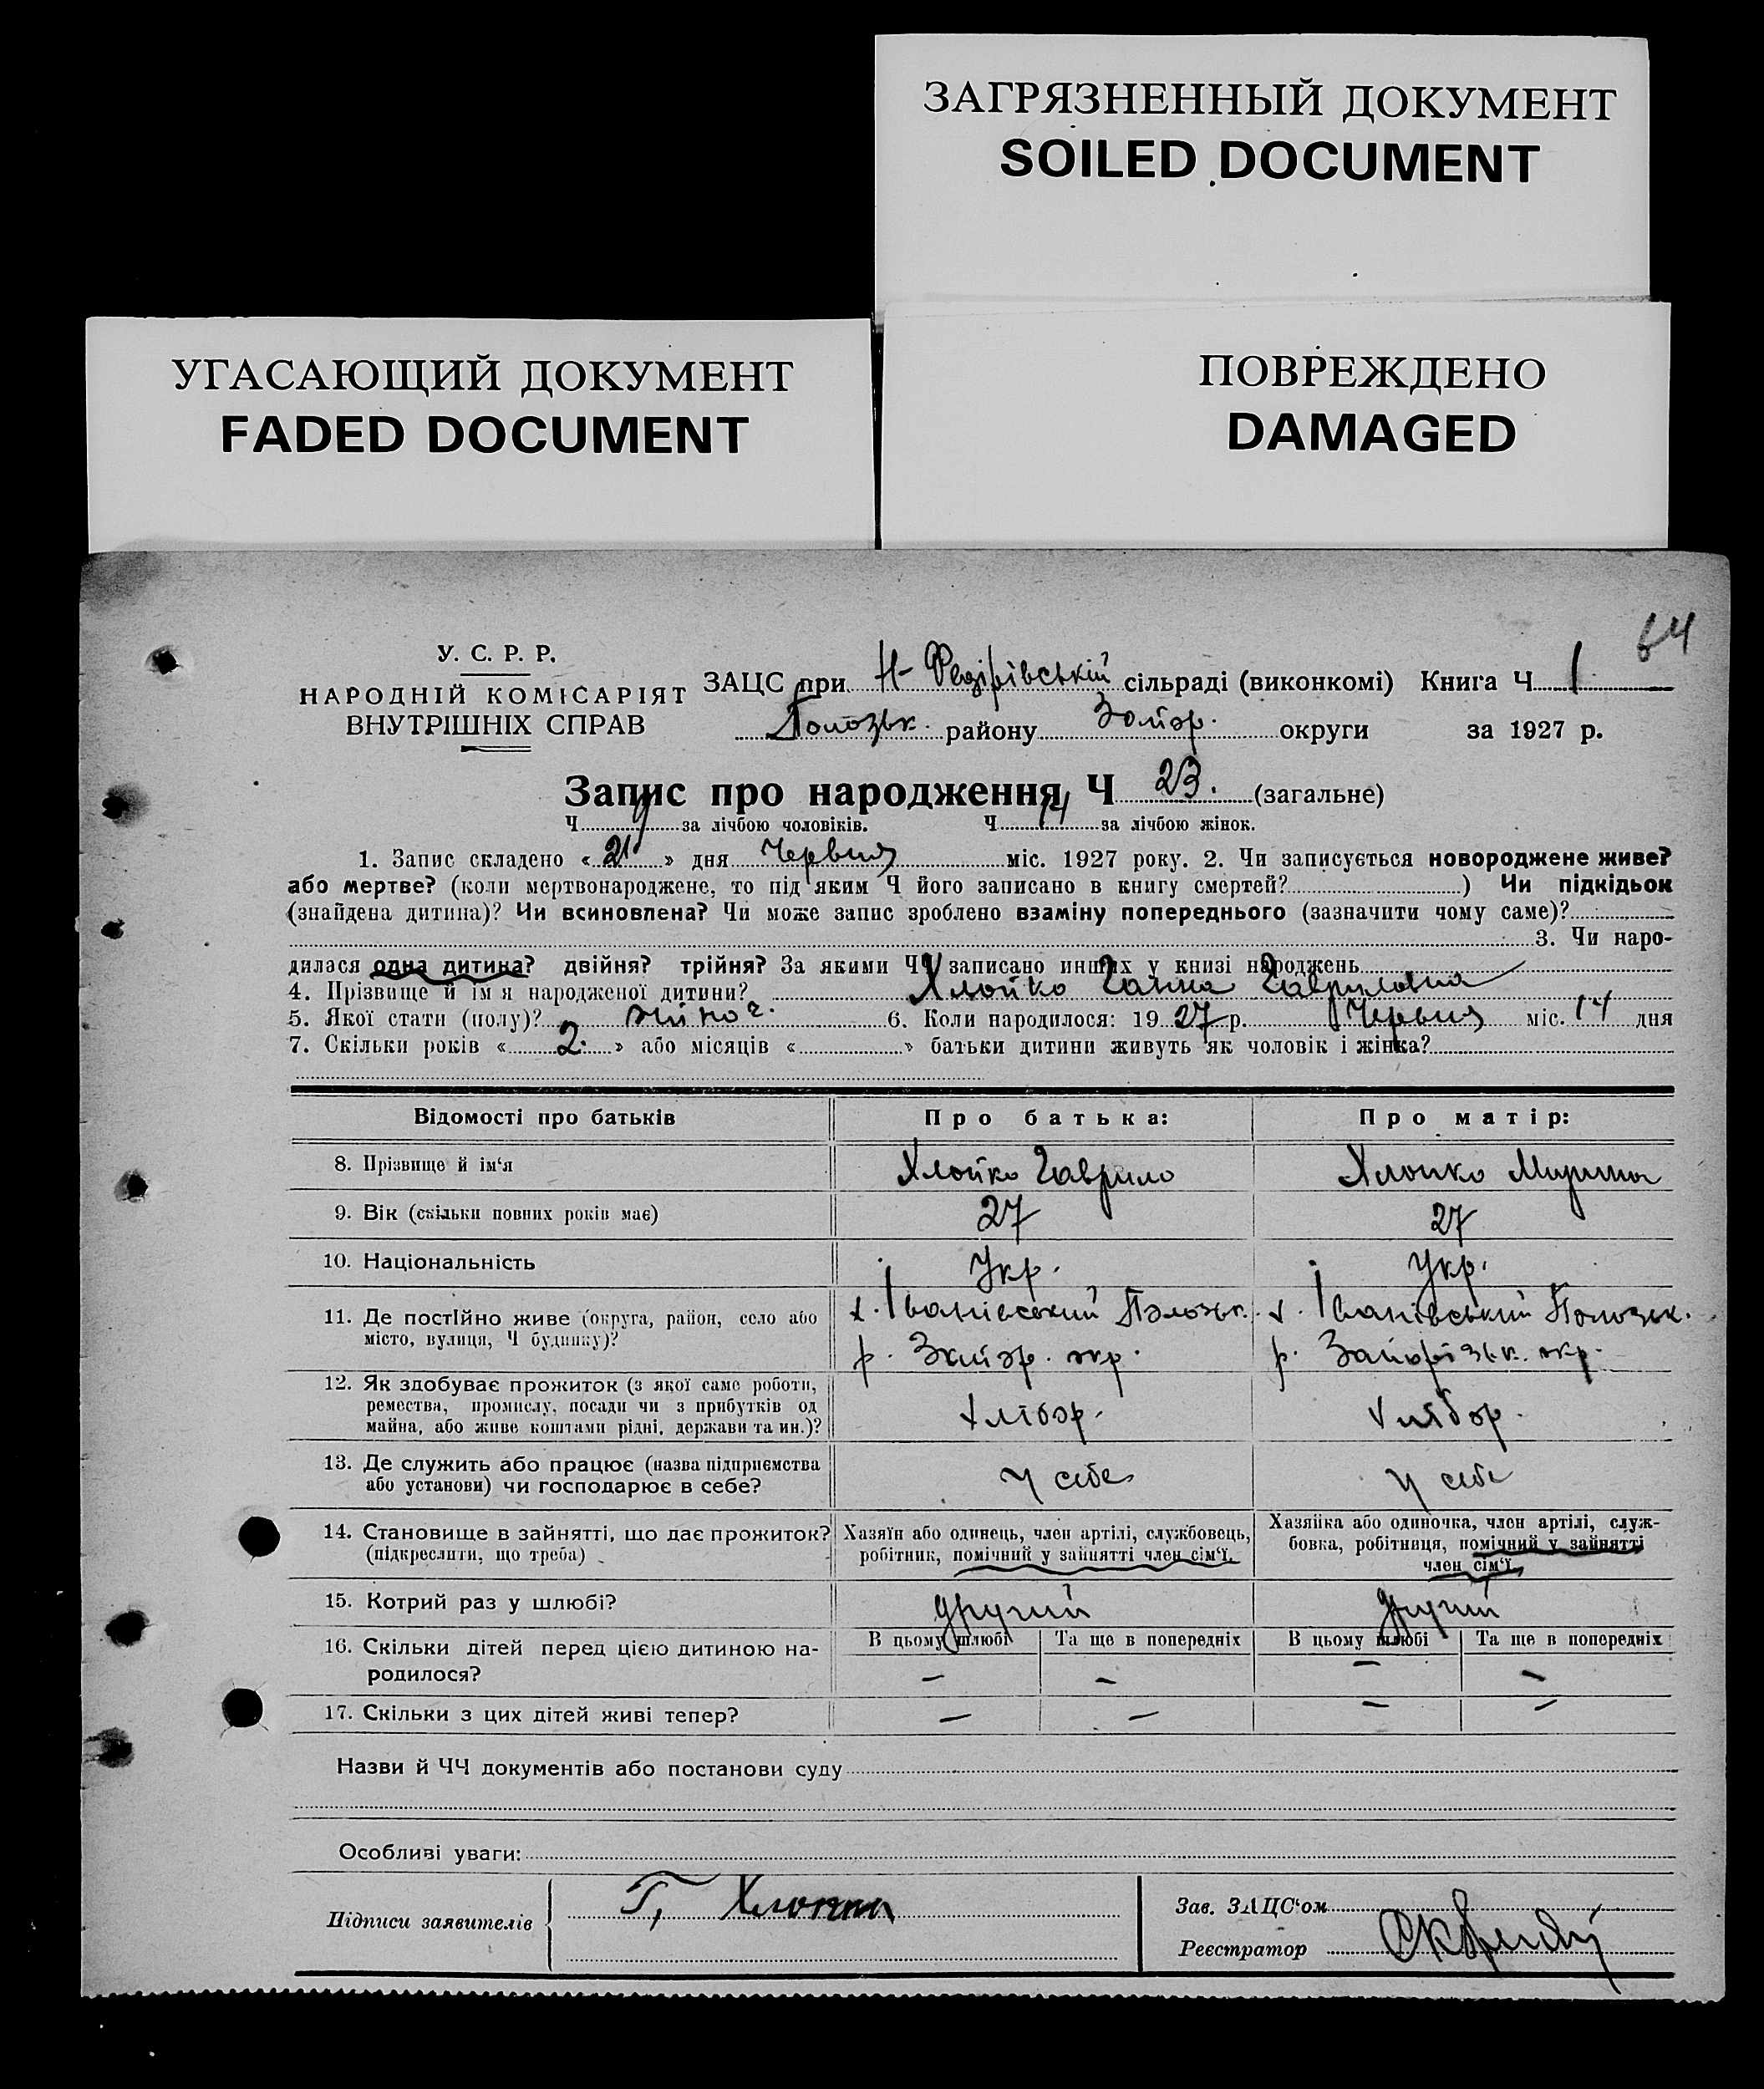 ЗАГРЯЗНЕННЫЙ ДОКУМЕНТ
SOILED DOCUMENT
УГАСАЮЩИЙ ДОКУМЕНТ
FADED DOCUMENT
ПОВРЕЖДЕНО
DAMAGED
64
У. С. Р. Р.
НАРОДНІЙ КОМІСАРІЯТ
ВНУТРІШНІХ СПРАВ
ЗАЦС при Н-Федірівській сільраді (виконкомі) Книга Ч 1
Полозьк. району Запор. округи за 1927 р.
Запис про народження Ч 23. (загальне)
Ч 9 за лічбою чоловіків. Ч 14 за лічбою жінок.
1. Запис складено « 21 » дня Червня міс. 1927 року. 2. Чи записується новороджене живе?
або мертве? (коли мертвонароджене, то під яким Ч його записано в книгу смертей? ) Чи підкідьок
(знайдена дитина)? Чи всиновлена? Чи може запис зроблено взаміну попереднього (зазначити чому саме)?
3. Чи наро-
дилася одна дитина? двійня? трійня? За якими ЧЧ записано инших у книзі народжень
4. Прізвище й ім'я народженої дитини? Хлопко Ганна Гавриловна
5. Якої стати (полу)? жіноч. 6. Коли народилося: 19 27 р. Червня міс. 14 дня
7. Скільки років « 2. » або місяців « » батьки дитини живуть як чоловік і жінка?
Відомості про батьків Про батька: Про матір:
8. Прізвище й ім'я Хлопко Гаврило Хлопко Марина
9. Вік (скільки повних років має) 27 27
10. Національність Укр. Укр.
11. Де постійно живе (округа, район, село або х. Іванівський Полозьк. х. Іванівський Полозьк.
місто, вулиця, Ч будинку)? р. Запор. окр. р. Запорізьк. окр.
12. Як здобуває прожиток (з якої саме роботи,
ремества, промислу, посади чи з прибутків од хлібор. хлібор.
майна, або живе коштами рідні, держави та ин.)?
13. Де служить або працює (назва підприємства у себе у себе
або установи) чи господарює в себе?
14. Становище в зайнятті, що дає прожиток? Хазяїн або одинець, член артілі, службовець, Хазяйка або одиночка, член артілі, служ-
(підкреслити, що треба) робітник, помічний у зайнятті член сім'ї. бовка, робітниця, помічний у зайнятті
член сім'ї.
15. Котрий раз у шлюбі? другий другий
16. Скільки дітей перед цією дитиною на- В цьому шлюбі Та ще в попередніх В цьому шлюбі Та ще в попередніх
родилося? — — — —
17. Скільки з цих дітей живі тепер? — — — —
Назви й ЧЧ документів або постанови суду
Особливі уваги:
Підписи заявителів Г. Зав. ЗАЦС'ом
Реєстратор